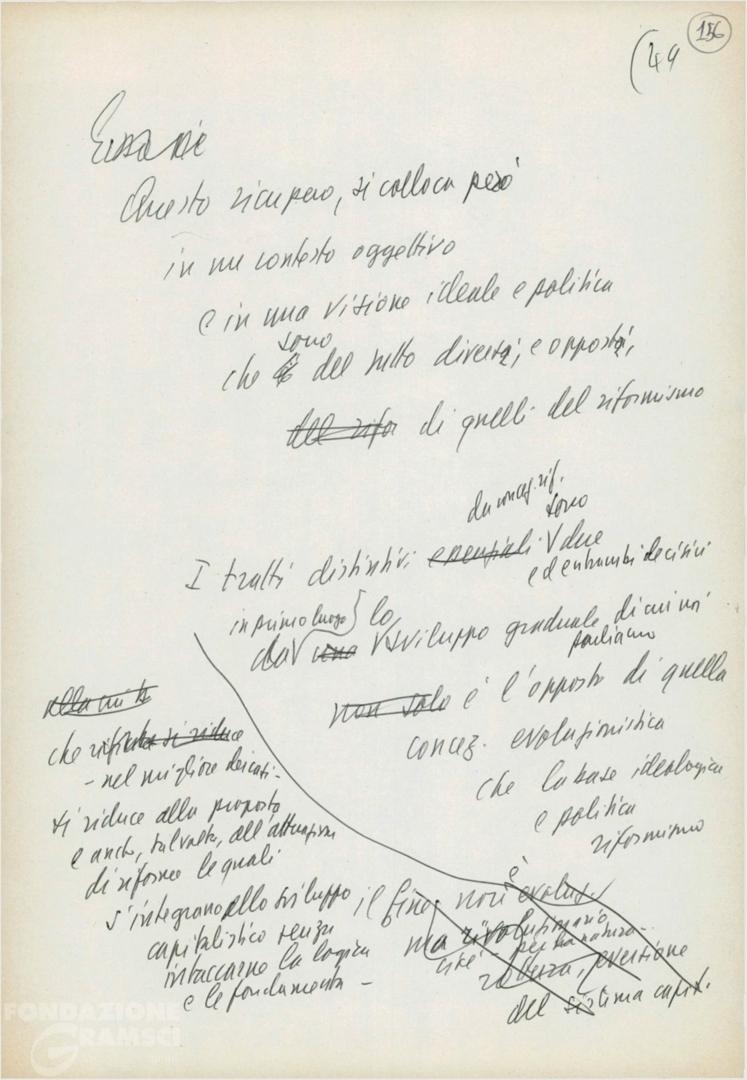 156
(49
Questo ricupero, si colloca però
in un contesto oggettivo
e in una visione ideale e politica
sono
che è del tutto diversi, e opposti,
del rifo di quelli del riformismo
da concez. rif.
sono
I tratti distintivi essenziali V due
ed entrambi decisivi
in primo luogo} lo
da V una V sviluppo graduale di cui noi
parliamo
non solo è l'opposto di quella
concez. evoluzionistica
che la base ideologica
e politica
riformismo
che si riduce
- nel migliore dei casi -
si riduce alla proposta
e anche, talvolta, all'attuazione
di riforme le quali
s'integrano allo sviluppo
capitalistico senza
intaccarne la logica
e le fondamenta -
il fine non è evoluz.
ma rivoluzionario,
cioè - per sua natura -
eversione
del sistema capit.
FONDAZIONE
GRAMSCI